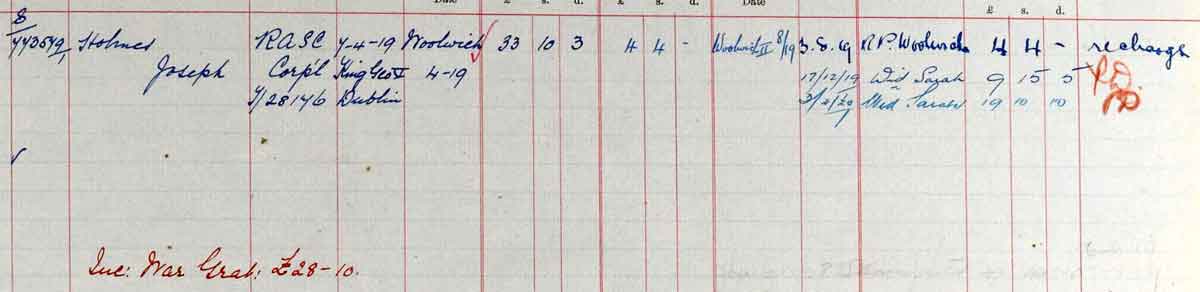 £ s. d. £ s. d. Date £ s. d.
8
443549/1 Holmes RASC 7-4-19 Woolwich 33 10 3 4 4 - Woolwich II 8/19 3.8.19 R.P. Woolwich 4 4 - recharge
Joseph Corp'l King Geo V 4-19 17/12/19 Wid Sarah 9 15 5
T/28146 Dublin 3/2/20 Wid Sarah 19 10 10
Inc: War Grat: £28-10.